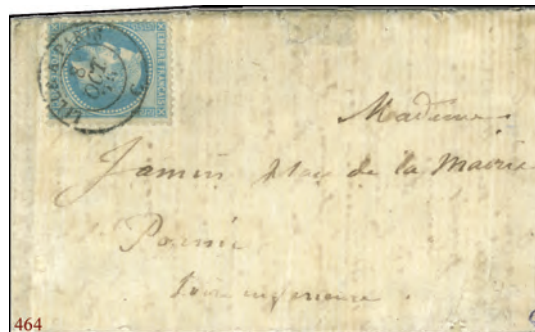 LILLE A PARIS
8
OCT
EMPIRE FRANÇAIS
Madame
Jamin place de la Mairie
Pornic
Loire inférieure
464